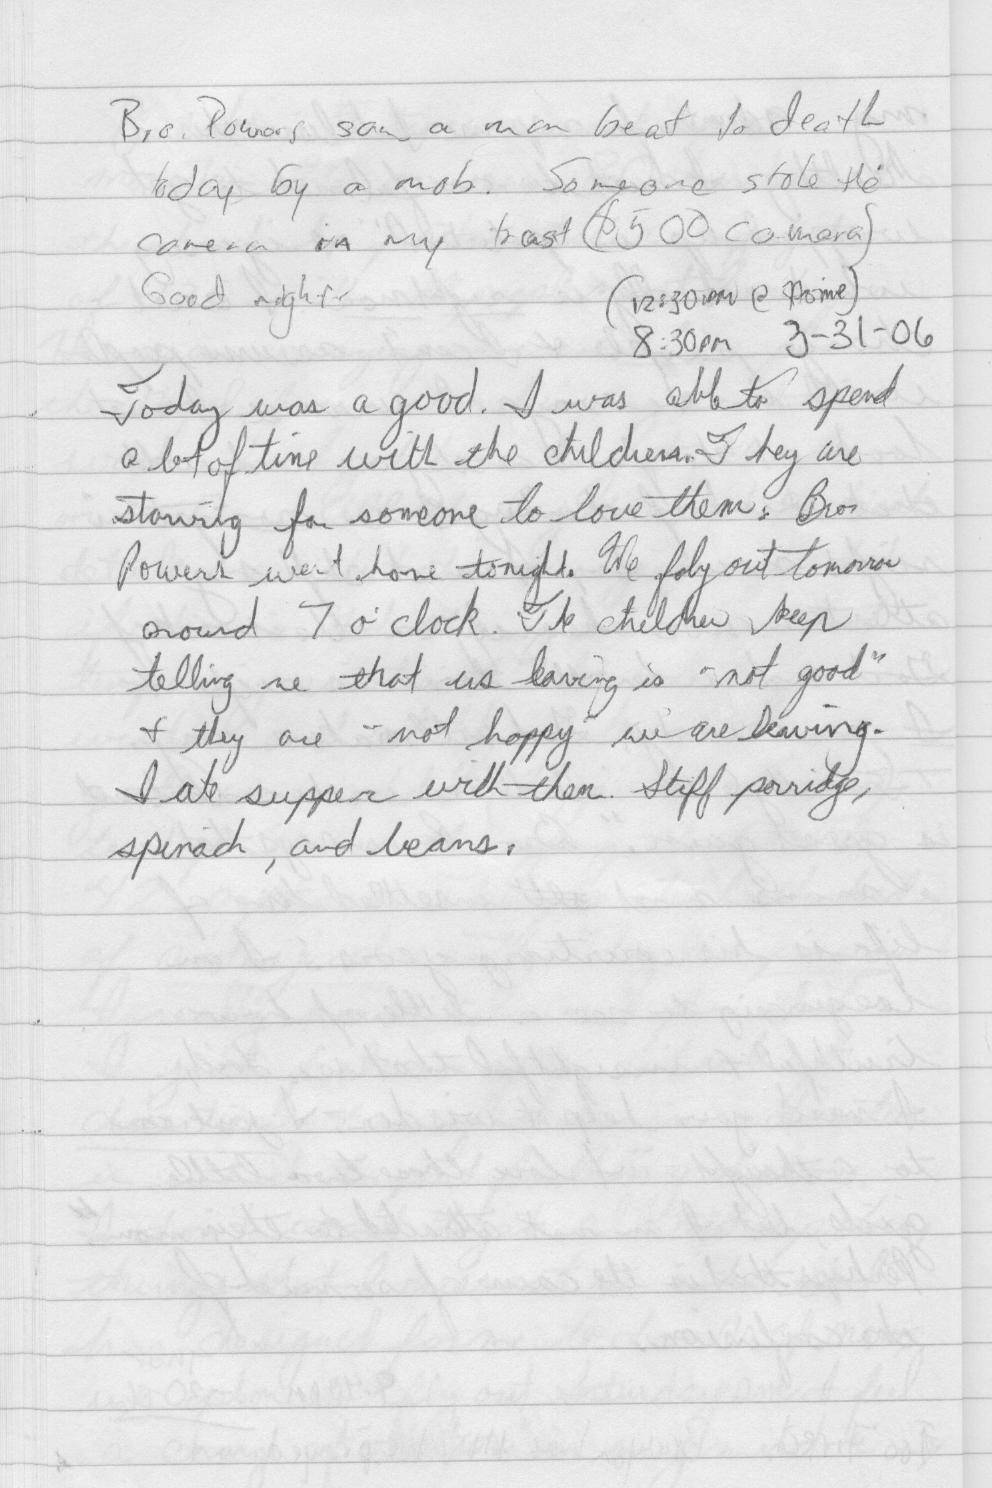 Bro. Powers saw a man beat to death
today by a mob. Someone stole the
camera in my trast ($500 camera)
Good night.
(12:30 pm @ Home)
8:30pm 3-31-06
Today was a good. I was able to spend
a lot of time with the children. They are
starving for someone to love them. Bro.
Powers went home tonight. We fly out tomorrow
around 7 o'clock. The children keep
telling me that us leaving is "not good"
& they are "not happy" we are leaving.
I ate supper with them. Stiff porridge,
spinach, and beans.